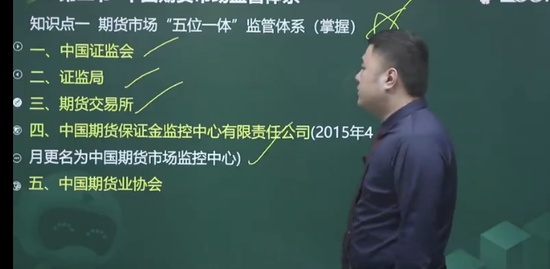 知识点一 期货市场“五位一体”监管体系（掌握）
一、中国证监会
二、证监局
三、期货交易所
四、中国期货保证金监控中心有限责任公司(2015年4
月更名为中国期货市场监控中心)
五、中国期货业协会